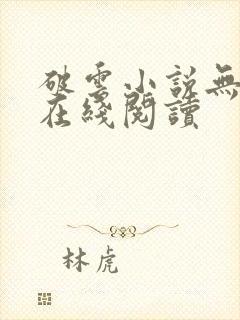 破雲小説無
在綫閱讀
林虎